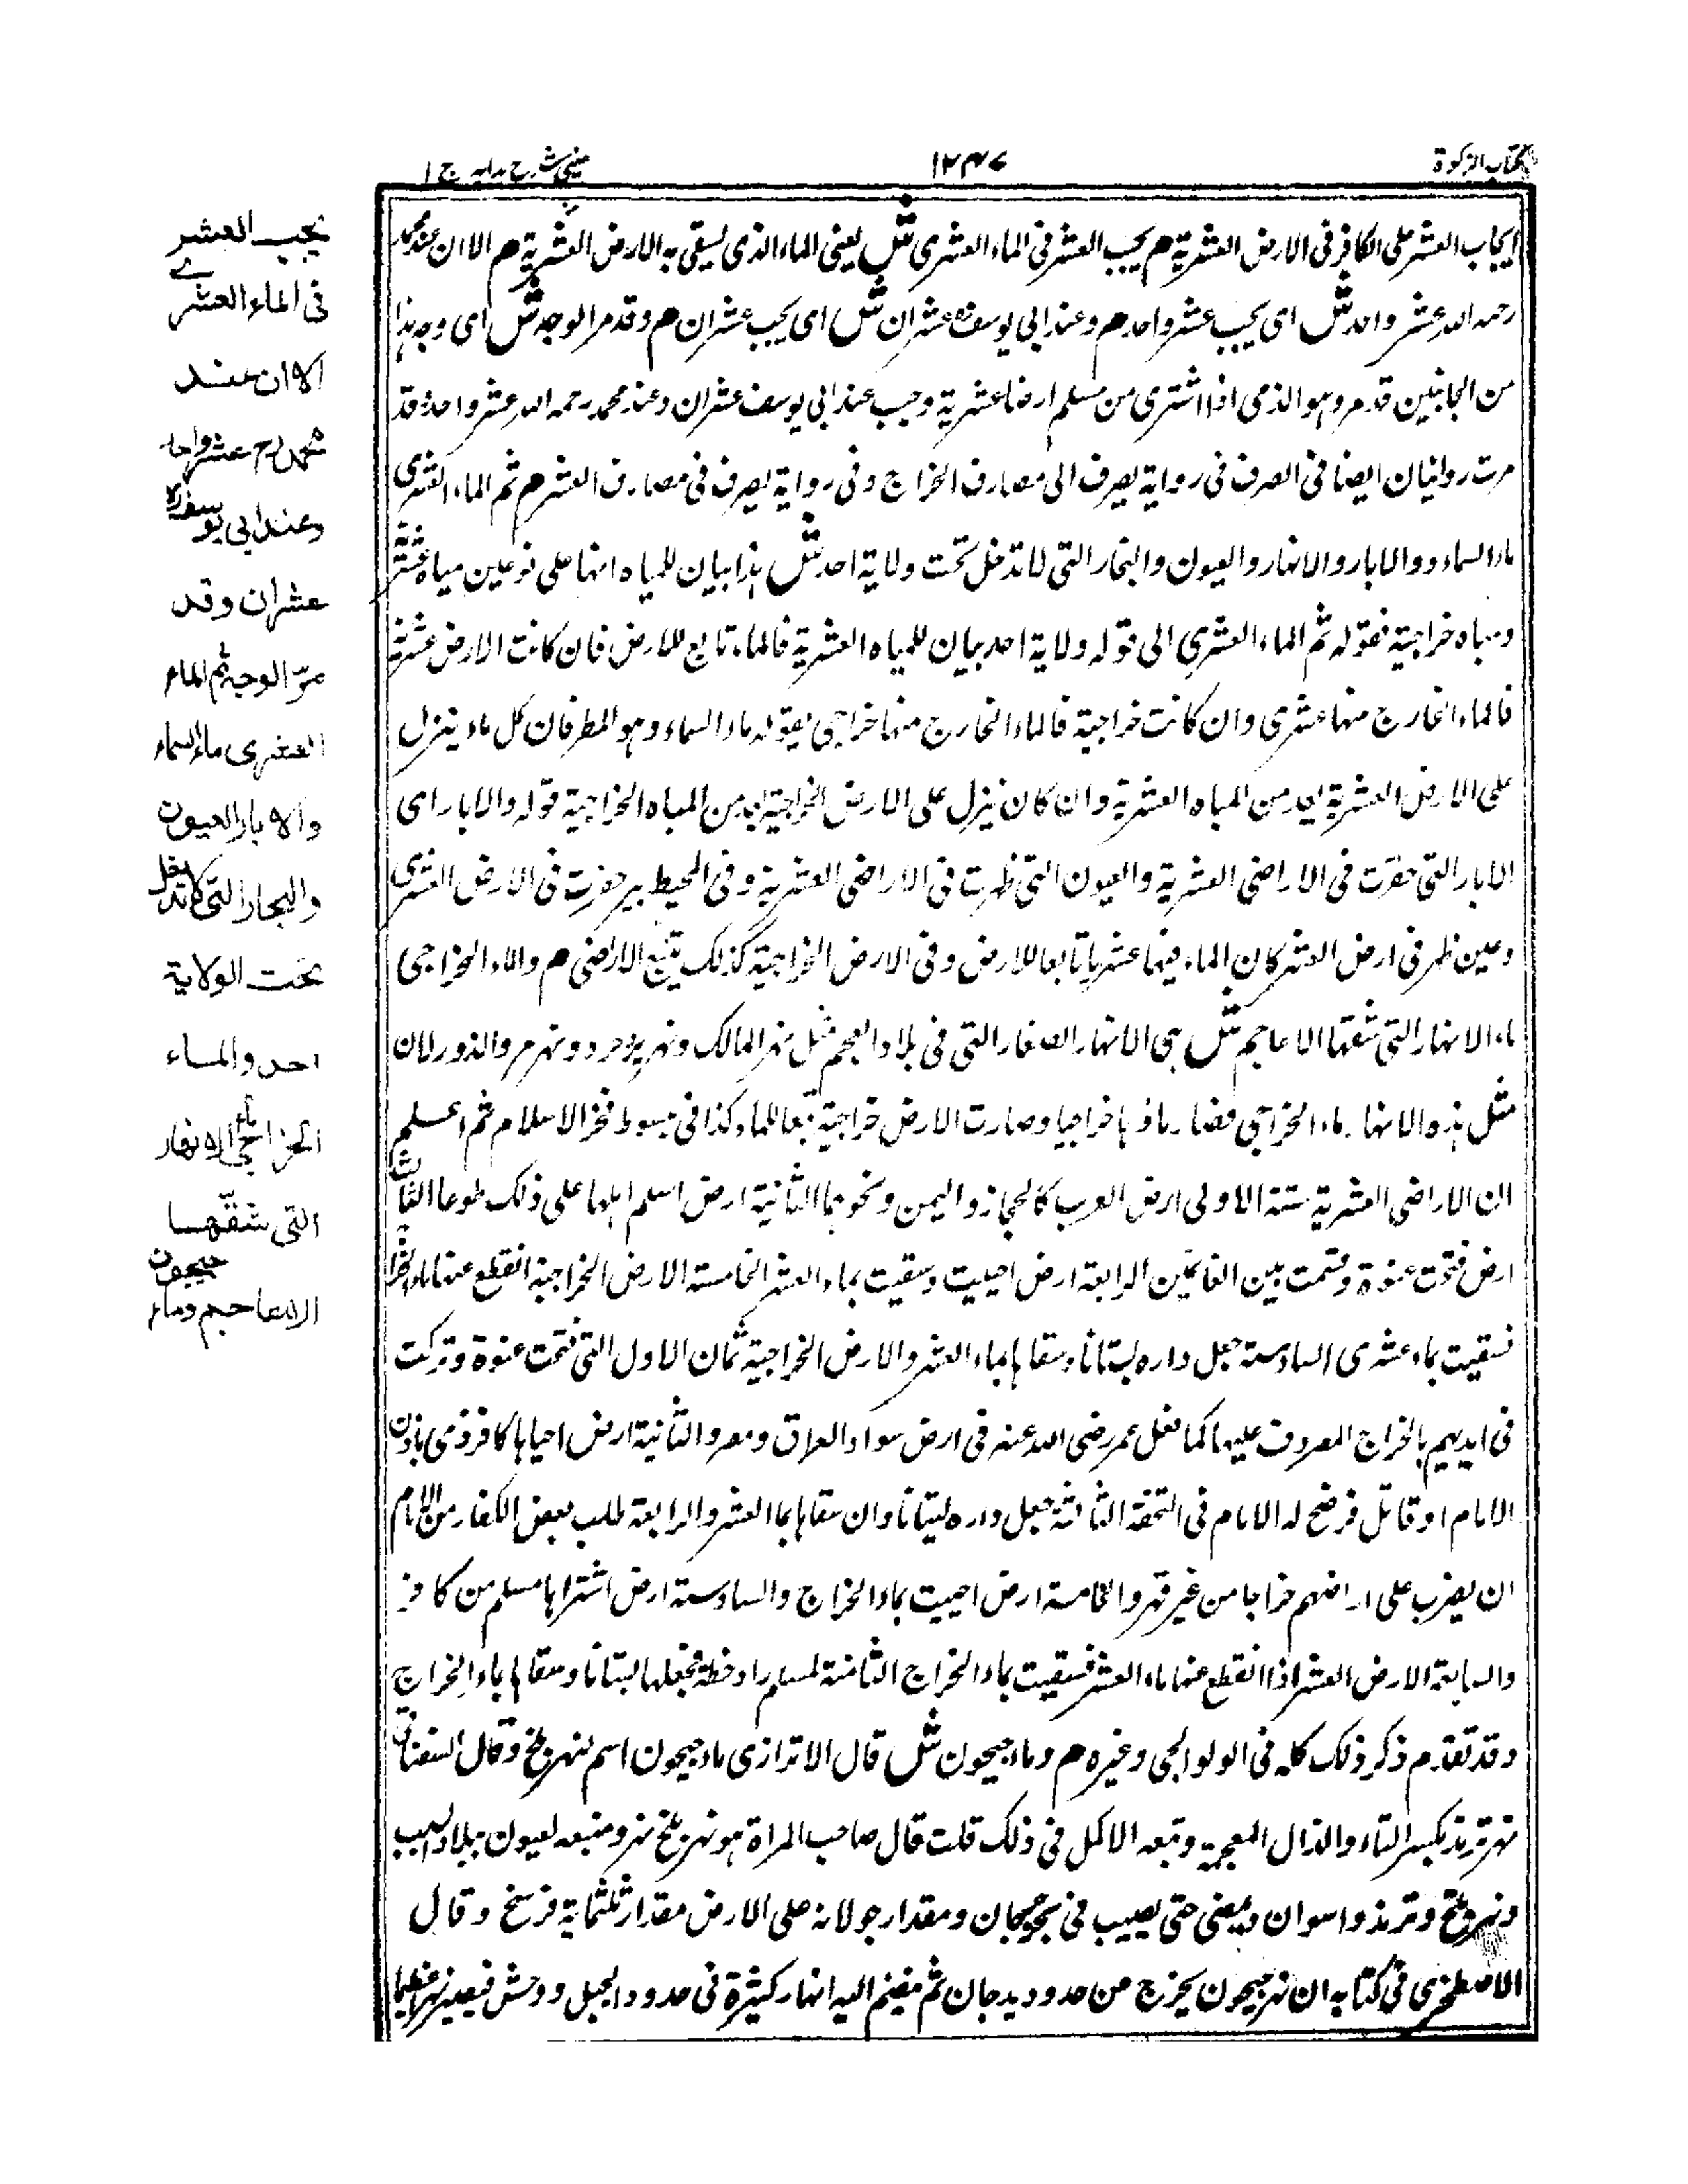 كتاب الزكوة
١٢٤٧
عيني شرح هدايه ج ١
ايجاب العشر على الكافر فى الارض العشرية هم يجب العشر فى الماء العشرى ش يعنى الماء الذى يسقى به الارض العشرية هم الا ان عند محمد
رحمه الله عشر واحد ش اى يجب عشر واحد هم وعند ابى يوسف ره عشران ش اى يجب عشران هم وقد مر الوجه ش اى وجه هذا
من الجانبين قد مر وهو الذمى اذا اشترى من مسلم ارضا عشرية وجب عند ابى يوسف عشران وعند محمد رحمه الله عشر واحد وقد
مرت روايتان ايضا فى الصرف فى رواية يصرف الى مصارف الخراج وفى رواية يصرف فى مصارف العشر هم ثم الماء العشرى
ماء السماء والابار والانهار والعيون والبحار التى لا تدخل تحت ولاية احد ش هذا بيان للمياه انها على نوعين مياه عشرية
ومياه خراجية فقوله ثم الماء العشرى الى قوله ولاية احد بيان للمياه العشرية فالماء تابع للارض فان كانت الارض عشرية
فالماء الخارج منها عشرى وان كانت خراجية فالماء الخارج منها خراجى بقوله ماء السماء وهو المطر فان كل ماء ينزل
على الارض العشرية يعد من المياه العشرية وان كان ينزل على الارض الخراجية يعد من المياه الخراجية قوله والابار اى
الابار التى حفرت فى الاراضى العشرية والعيون التى ظهرت فى الاراضى العشرية وفى المحيط بير حفرت فى الارض العشرى
وعين ظهر فى ارض العشر كان الماء فيها عشريا تابعا للارض وفى الارض الخراجية كذلك يتبع الاراضى هم والماء الخراجى
ماء الانهار التى شقتها الاعاجم ش هى الانهار الصغار التى فى بلاد العجم مثل نهر المالك ونهر يزدجرد ونهر مرو الذور لان
مثل هذه الانهار ماء الخراجى فصار ماؤها خراجيا وصارت الارض خراجية تبعا للماء كذا فى مبسوط فخر الاسلام ثم اعلم
ان الاراضى العشرية ستة الاولى ارض العرب كالحجاز واليمن ونحوهما الثانية ارض اسلم اهلها على ذلك طوعا الثالث
ارض فتحت عنوة وقسمت بين الغانمين الرابعة ارض احييت وسقيت بماء العشر الخامسة الارض الخراجية انقطع عنها ماء الخراج
فسقيت بماء عشرى السادسة جعل داره بستانا وسقاها بماء العشر والارض الخراجية ثمان الاول التى فتحت عنوة وتركت
فى ايديهم بالخراج المعروف عليها كما فعل عمر رضى الله عنه فى ارض سواد العراق ومصر والثانية ارض احياها كافر ذمى باذن
الامام او قاتل فرضخ له الامام فى التحفة الثالثة جعل داره بستانا وان سقاها بماء العشر والرابعة طلب بعض الكفار من الامام
ان يضرب على اراضهم خراجا من غير قهر والخامسة ارض احييت بماء الخراج والسادسة ارض اشتراها مسلم من كافر
والسابعة الارض العشر اذا انقطع عنها ماء العشر فسقيت بماء الخراج الثامنة لمسلم دار خطة فجعلها بستانا وسقاها بماء الخراج
وقد تقدم ذكر ذلك كله فى الولوالجى وغيره هم وماء جيحون ش قال الاترازى ماء جيحون اسم لنهر بلخ وقال السغناقى
نهر ترمذ بكسر التاء والذال المعجمة وتبعه الاكمل فى ذلك قلت قال صاحب المرأة هو نهر بلخ نهر ومنبعه لعيون ببلاد
ونهر بلخ وترمذ واسوان ويمضى حتى يصيب فى ومقدار جولانه على الارض مقدار ثلثماية فرسخ وقال
الاصطخرى فى كتابه ان نهر جيحون يخرج من حدود بدجان ثم ينضم اليه انهار كثيرة فى حدود الجبل ووخش فيصير نهرا عظيما
يجب العشر
فى الماء العشرے
الا ان عند
محمد رح عشر واحد
وعند ابى يوسف ره
عشران وقد
مرّ الوجه ثم الماء
العشرى ماء السماء
والابار والعيون
والبحار التى لا تدخل
تحت الولاية
احد والماء
الخراجى ماء الانهار
التى شقّها
الاعاجم وماء جيحون